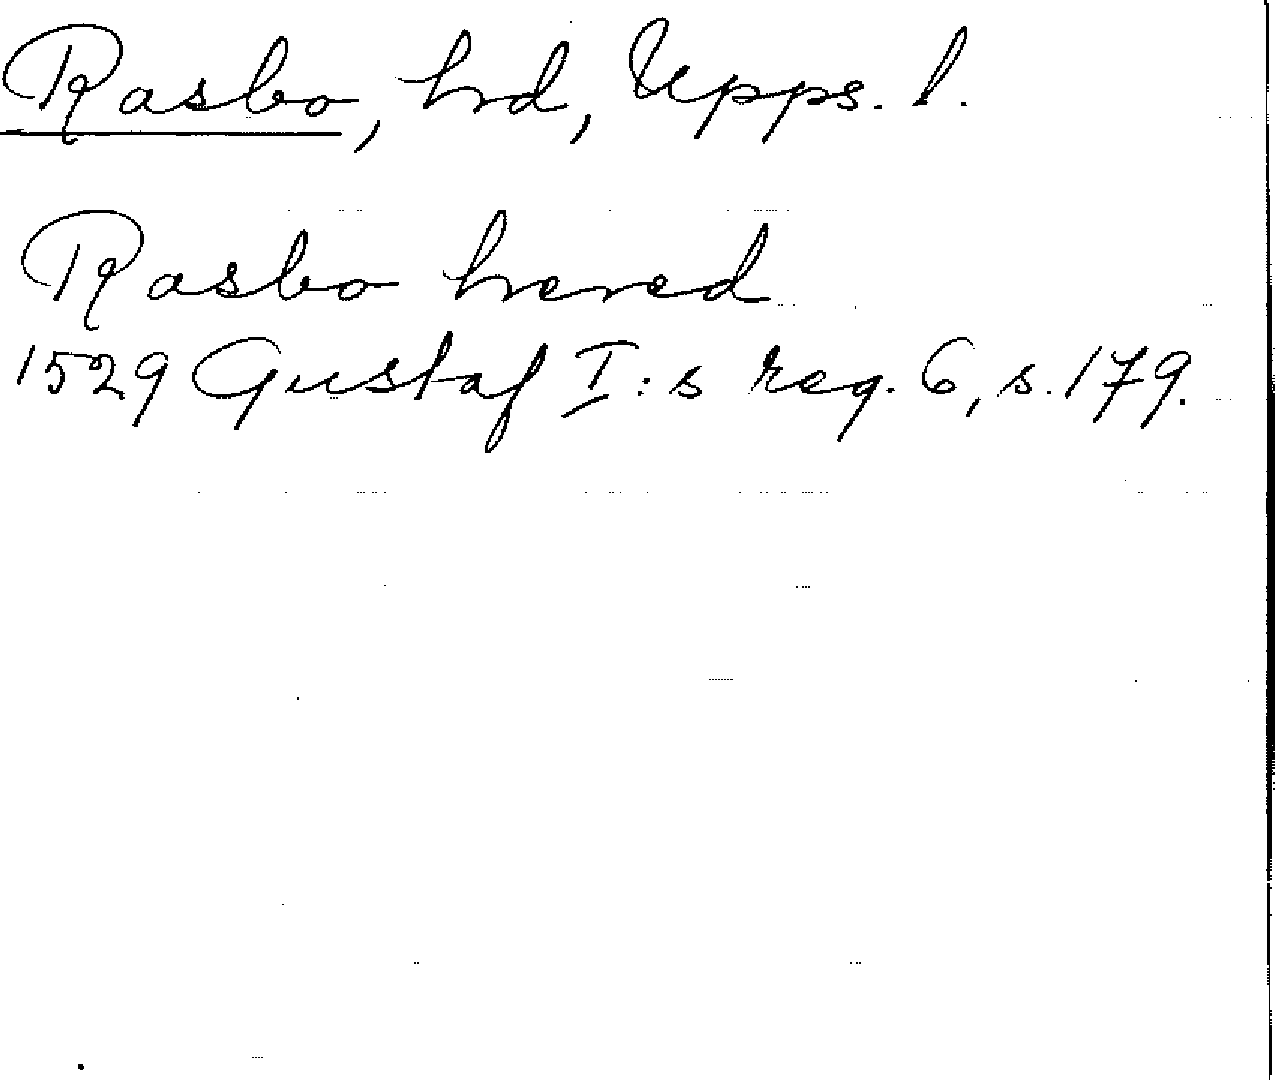 Rasbo, hrd, Upps. l.
Rasbo hered
1529 Gustaf I:s reg. 6, s. 179.